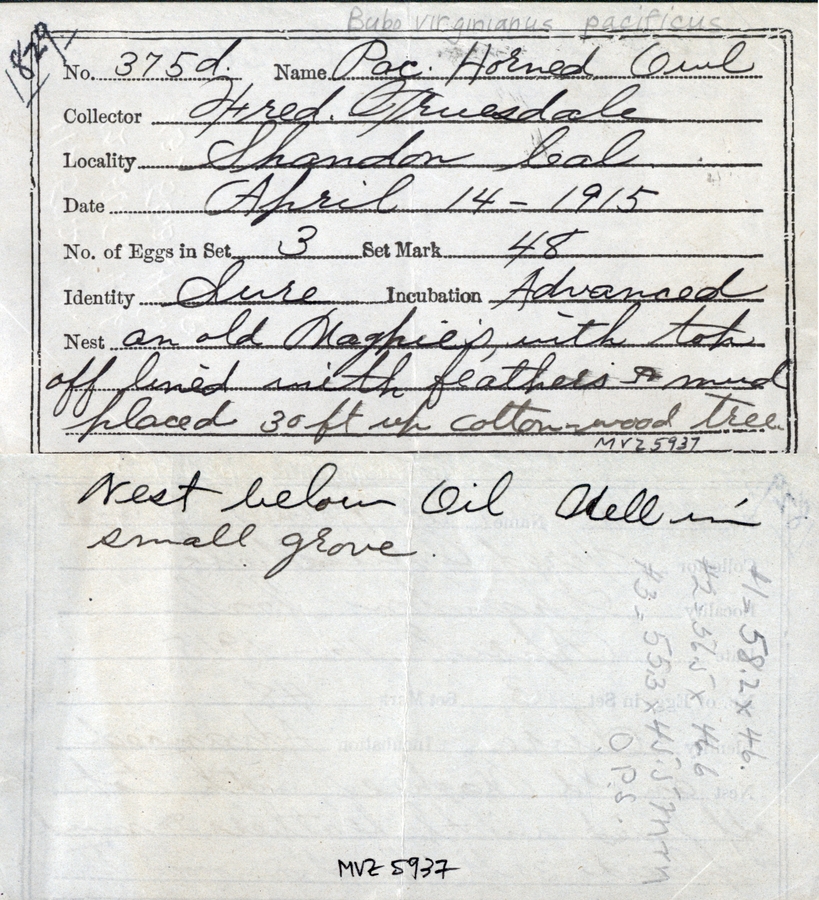 Bubo virginianus pacificus
1829
No. 375d. Name Pac. Horned Owl
Collector Fred. Truesdale
Locality Shandon Cal
Date April 14 - 1915
No. of Eggs in Set 3 Set Mark 48
Identity Sure Incubation Advanced
Nest an old Magpie's with top
off lined with feathers & mud
placed 30 ft up cotton-wood tree
MVZ 5937
Nest below Oil Well in
small grove.
#1 - 58.2 x 46.
#2 - 57.5 x 46.6
#3 - 55.3 x 45.5 mm
O.P.S.
MVZ 5937